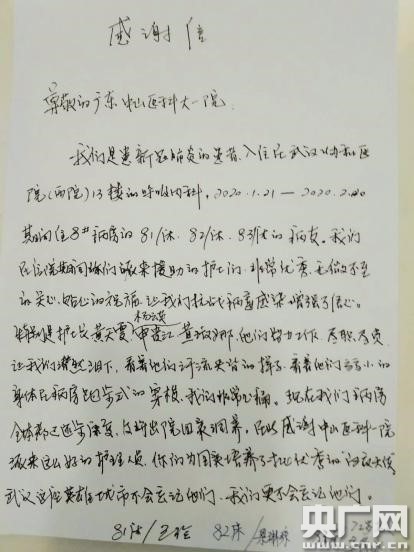 感谢信
尊敬的广东中山医科大一院
我们是患新冠肺炎的患者、入住在武汉协和医
院(西院)13楼的呼吸内科, 2020.1.21—2020.2.20
期间住8#病房的81床、82床、83床的病友。我们
在住院期间你们派来援助的护士们、非常优秀、无微不至
的关心、贴心的祝福、让我们抗战病毒感染增强了信心。
特别是护士长黄天雯、 他们努力工作、尽职尽责
让我们潸然泪下,看着他们汗流夹背的样子,看着他们弱小的
身体在病房 的穿梭,我们非常心痛。现在我们病房
全体都已逐步康复、 出院回家调养。在此感谢中山医科一院
派来这么好的护理人员、你们为国家培养了 优秀的白衣天使
武汉这座英雄城市不会忘记他们、我们更不会忘记他们。
81床/ 82床/
央广网
www.cnr.cn